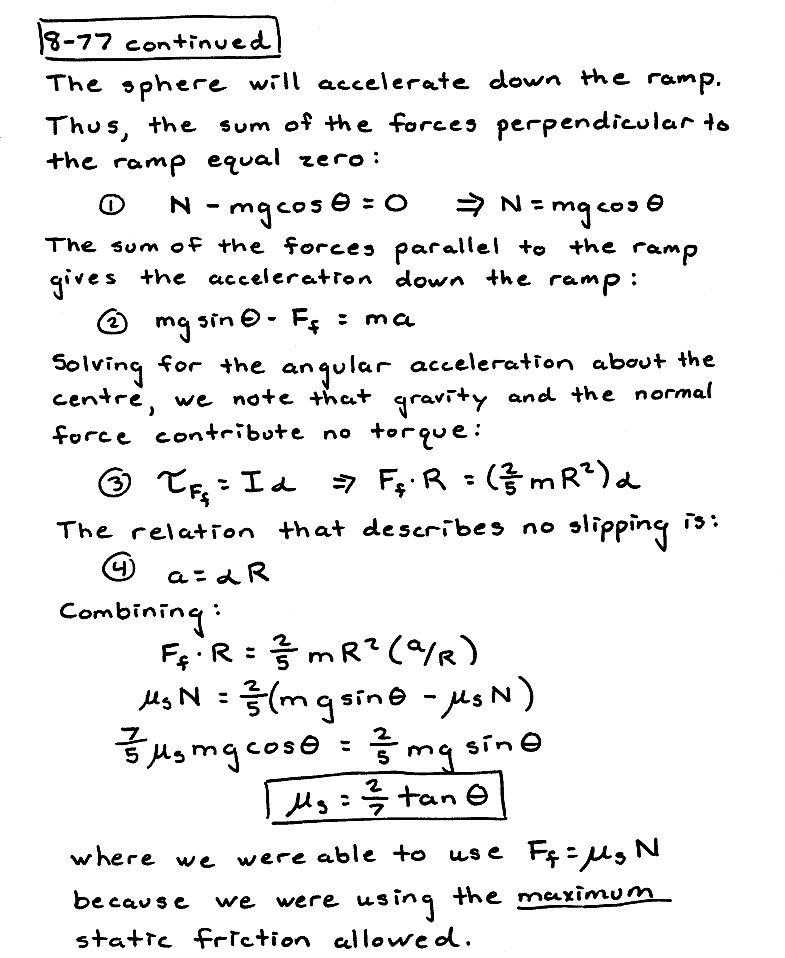 8-77 continued
The sphere will accelerate down the ramp.
Thus, the sum of the forces perpendicular to
the ramp equal zero:
① N - mg cos θ = 0 ⇒ N = mg cos θ
The sum of the forces parallel to the ramp
gives the acceleration down the ramp:
② mg sin θ - F_f = ma
Solving for the angular acceleration about the
centre, we note that gravity and the normal
force contribute no torque:
③ τ_{F_f} = Iα ⇒ F_f · R = (2/5 mR²)α
The relation that describes no slipping is:
④ a = αR
Combining:
F_f · R = 2/5 mR² (a/R)
μ_s N = 2/5 (mg sin θ - μ_s N)
7/5 μ_s mg cos θ = 2/5 mg sin θ
μ_s = 2/7 tan θ
where we were able to use F_f = μ_s N
because we were using the maximum
static friction allowed.